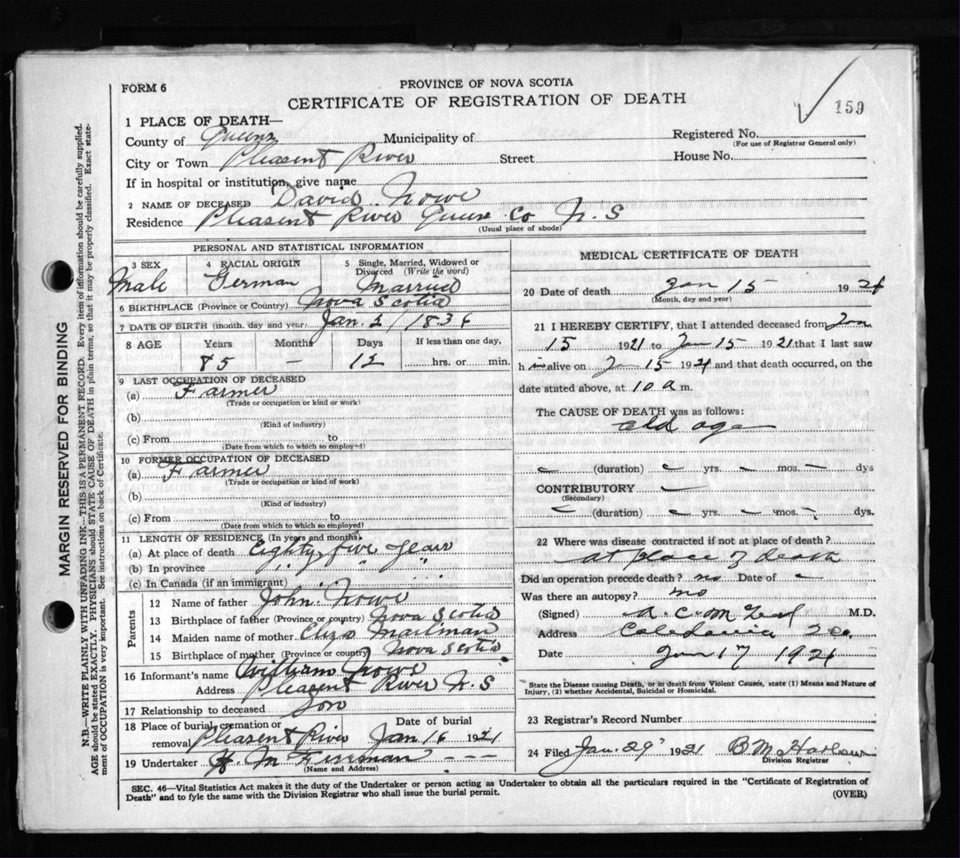 FORM 6
PROVINCE OF NOVA SCOTIA
CERTIFICATE OF REGISTRATION OF DEATH
159
1 PLACE OF DEATH—
County of Queens Municipality of
Registered No.
(For use of Registrar General only)
City or Town Pleasent River Street House No.
If in hospital or institution, give name
2 NAME OF DECEASED David Nowe
Residence Pleasent River Queens Co N.S
(Usual place of abode)
PERSONAL AND STATISTICAL INFORMATION
3 SEX
Male
4 RACIAL ORIGIN
German
5 Single, Married, Widowed or
Divorced (Write the word)
Married
6 BIRTHPLACE (Province or Country) Nova Scotia
7 DATE OF BIRTH (month, day and year) Jan.
8 AGE Years Months Days If less than one day,
85 — 12 hrs. or min.
9 LAST OCCUPATION OF DECEASED
(a) Farmer
(Trade or occupation or kind or work)
(b)
(Kind of industry)
(c) From to
(Date from which to which so employed)
10 FORMER OCCUPATION OF DECEASED
(a) Farmer
(Trade or occupation or kind of work)
(b)
(Kind of industry)
(c) From to
(Date from which to which so employed)
11 LENGTH OF RESIDENCE (In years and months)
(a) At place of death Eighty five years
(b) In province " " "
(c) In Canada (if an immigrant)
Parents
12 Name of father John Nowe
13 Birthplace of father (Province or country) Nova Scotia
14 Maiden name of mother Eliza Mailman
15 Birthplace of mother (Province or country) Nova Scotia
16 Informant's name William Nowe
Address Pleasent River N.S
17 Relationship to deceased Son
18 Place of burial, cremation or
removal Pleasent River
Date of burial
Jan 16 1921
19 Undertaker
(Name and Address)
MEDICAL CERTIFICATE OF DEATH
20 Date of death Jan 15 1921
(Month, day and year)
21 I HEREBY CERTIFY, that I attended deceased from Jan
15 1921 to Jan 15 1921 that I last saw
h im alive on J 15 1921 and that death occurred, on the
date stated above, at 10 a m.
The CAUSE OF DEATH was as follows:
old age
(duration) yrs. mos. dys
CONTRIBUTORY
(Secondary)
(duration) yrs. mos. dys.
22 Where was disease contracted if not at place of death?
at place of death
Did an operation precede death? no Date of —
Was there an autopsy? no
(Signed) M.D.
Address Caledonia
Date Jan 17 1921
State the Disease causing Death, or in death from Violent Causes, state (1) Means and Nature of
Injury, (2) whether Accidental, Suicidal or Homicidal.
23 Registrar's Record Number
24 Filed Jan. 29 1921 B M Harlow
Division Registrar
SEC. 46—Vital Statistics Act makes it the duty of the Undertaker or person acting as Undertaker to obtain all the particulars required in the "Certificate of Registration of
Death" and to fyle the same with the Division Registrar who shall issue the burial permit.
(OVER)
MARGIN RESERVED FOR BINDING
N.B.—WRITE PLAINLY WITH UNFADING INK—THIS IS A PERMANENT RECORD. Every item of information should be carefully supplied.
AGE should be stated EXACTLY. PHYSICIANS should STATE CAUSE OF DEATH in plain terms, so that it may be properly classified. Exact state-
ment of OCCUPATION is very important. See instructions on back of Certificate.